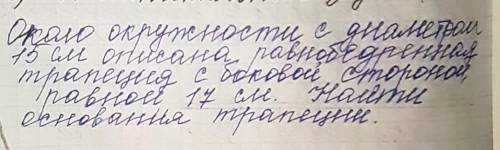 Около окружности с диаметром
15 см описана равнобедренная
трапеция с боковой стороной,
равной 17 см. Найти
основания трапеции.